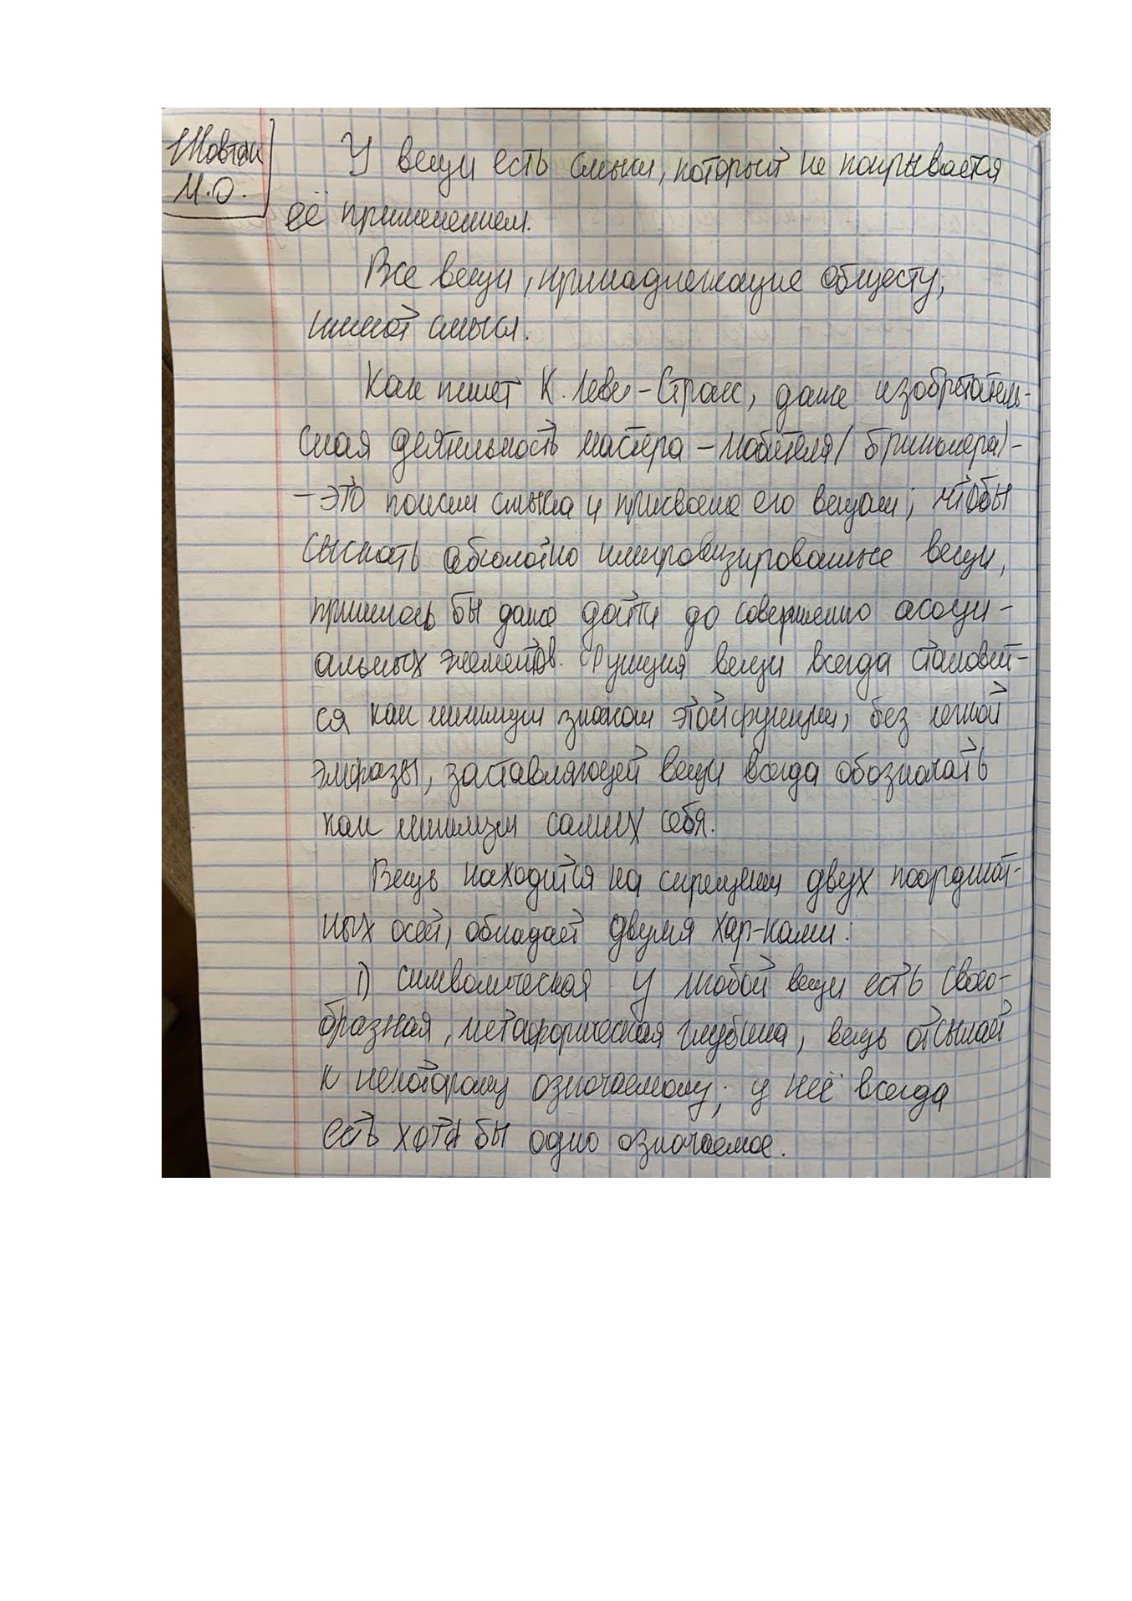 Жовтан
М.О.
У вещи есть смысл, который не покрывается
её применением.
Все вещи, принадлежащие общесту,
имеют смысл.
Как пишет К. Леви-Стросс, даже изобретатель-
ская деятельность мастера-любителя (бриколера) -
- это поиски смысла и присвоение его вещам; чтобы
сыскать абсолютно импровизированные вещи,
пришлось бы даже дойти до совершенно асоци-
альных элементов. Функция вещи всегда становит-
ся как минимум знаком этой функции, без легкой
эмфазы, заставляющей вещи всегда обозначать
как минимум самих себя.
Вещь находится на скрещении двух координат-
ных осей, обладает двумя хар-ками:
1) символическая у любой вещи есть свое-
образная, метафорическая глубина, вещь отсылает
к некоторому означаемому; у неё всегда
есть хотя бы одно означаемое.